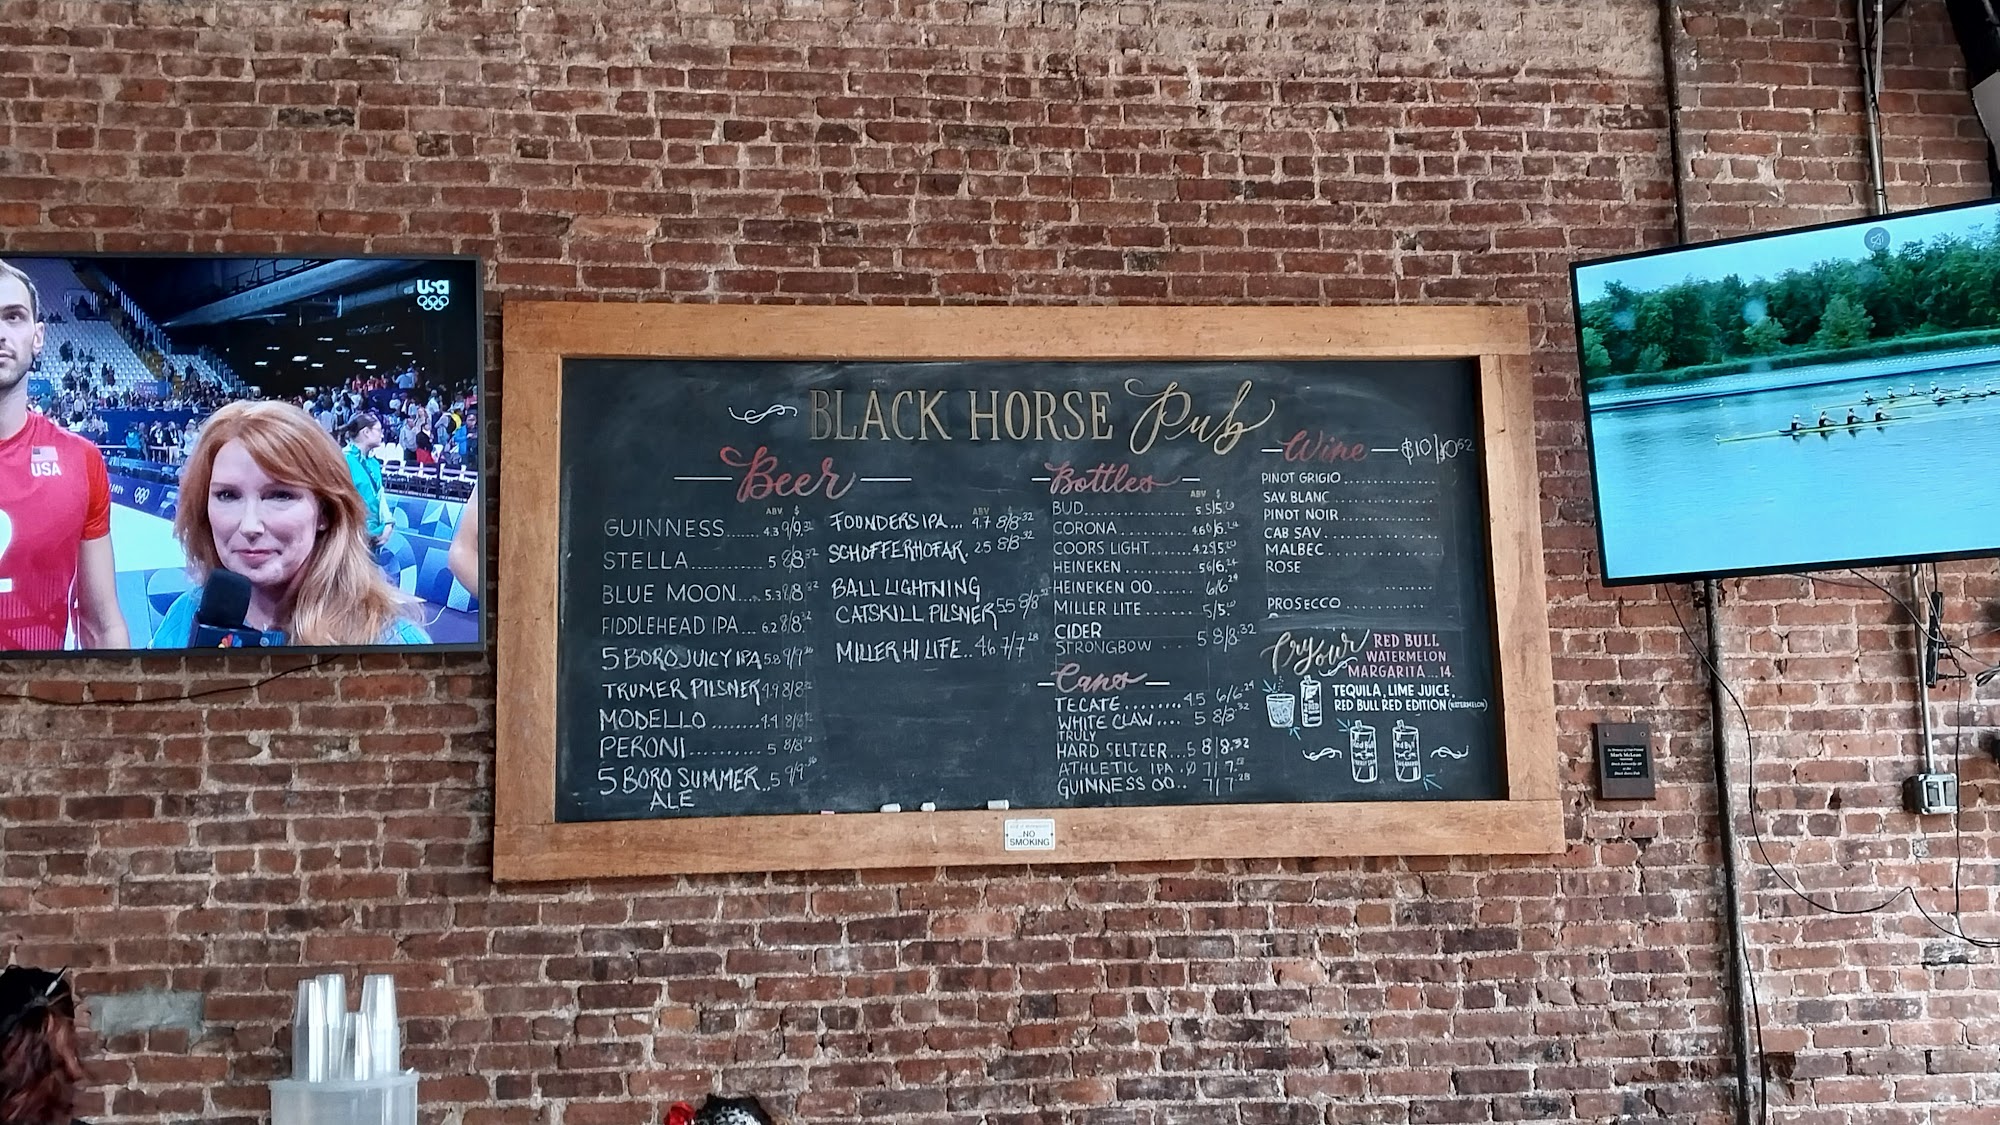 usa
USA
2
BLACK HORSE Pub
Beer
ABV $
GUINNESS....... 4.3 9/9.32
STELLA............ 5 8/8.32
BLUE MOON.... 5.3 8/8.32
FIDDLEHEAD IPA... 6.2 8/8.32
5 BORO JUICY IPA 5.8 9/9.36
TRUMER PILSNER 4.9 8/8.32
MODELLO ........ 4.4 8/8.32
PERONI........... 5 8/8.32
5 BORO SUMMER.. 5 9/9.36
ALE
ABV $
FOUNDERS IPA... 4.7 8/8.32
SCHOFFERHOFAR. 2.5 8/8.32
BALL LIGHTNING
CATSKILL PILSNER 5.5 9/8
MILLER HI LIFE.. 4.6 7/7.28
Bottles
ABV $
BUD.............. 5 5/5.20
CORONA.......... 4.60 6/6.24
COORS LIGHT..... 4.2 5/5.20
HEINEKEN........ 5 6/6.24
HEINEKEN 00.. 6/6.24
MILLER LITE...... 5/5.20
CIDER
STRONGBOW .... 5 8/8.32
Cans
TECATE........ 4.5 6/6.24
WHITE CLAW.... 5 8/8.32
TRULY
HARD SELTZER...5 8/8.32
ATHLETIC IPA .0 7/7.28
GUINNESS 00.. 7/7.28
Wine $10/10.52
PINOT GRIGIO...............
SAV. BLANC ................
PINOT NOIR................
CAB SAV..................
MALBEC..................
ROSE
PROSECCO ............
Try our RED BULL
WATERMELON
MARGARITA...14.
TEQUILA, LIME JUICE,
RED BULL RED EDITION (WATERMELON)
Red Bull
Red Bull
NO
SMOKING
Mark McLean